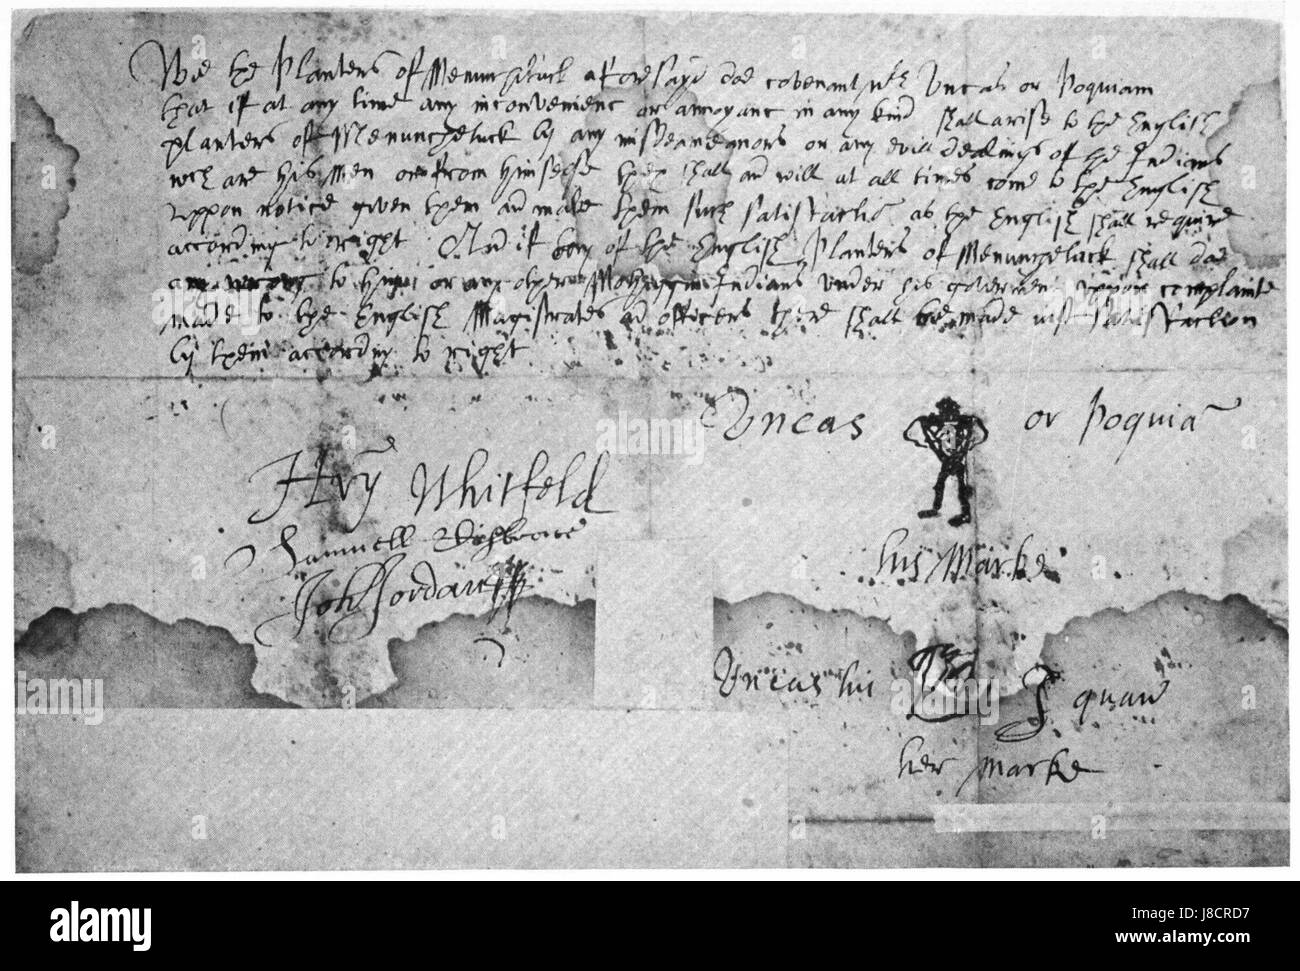 Wee the Planters of Menunchatuck aforesayd doe covenant wth Vncas or Poquiam
that if at any time any inconvenienc or annoyanc in any kind shall arise to the English
planters of Menunchetuck by any misdeameanors or any evill dealings of the Indians
wch are his Men or from himselfe they shall and will at all times come to the English
vppon notice given them and make them such satisfactio as the English shall require
according to right And if any of the English Planters of Menuncheteuck shall doe
any wrong to him or any other Mohiggin Indians vnder his govermen vppon complainte
made to the English Magistrates and officers there shall bee made iust satisfaction
by them according to right
Vncas or Poquia
Hry Whitfeld
Samuell Disbrowe
Joh Jordane
his Marke
Vncas his Squaw
her Marke
alamy
Image ID: J8CRD7
www.alamy.com